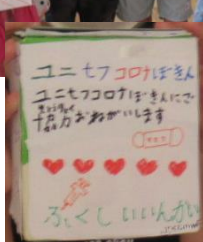 ユニセフコロナぼきん
ユニセフコロナぼきんにご
きょうりょく
協力おねがいします
ふくしいいんかい